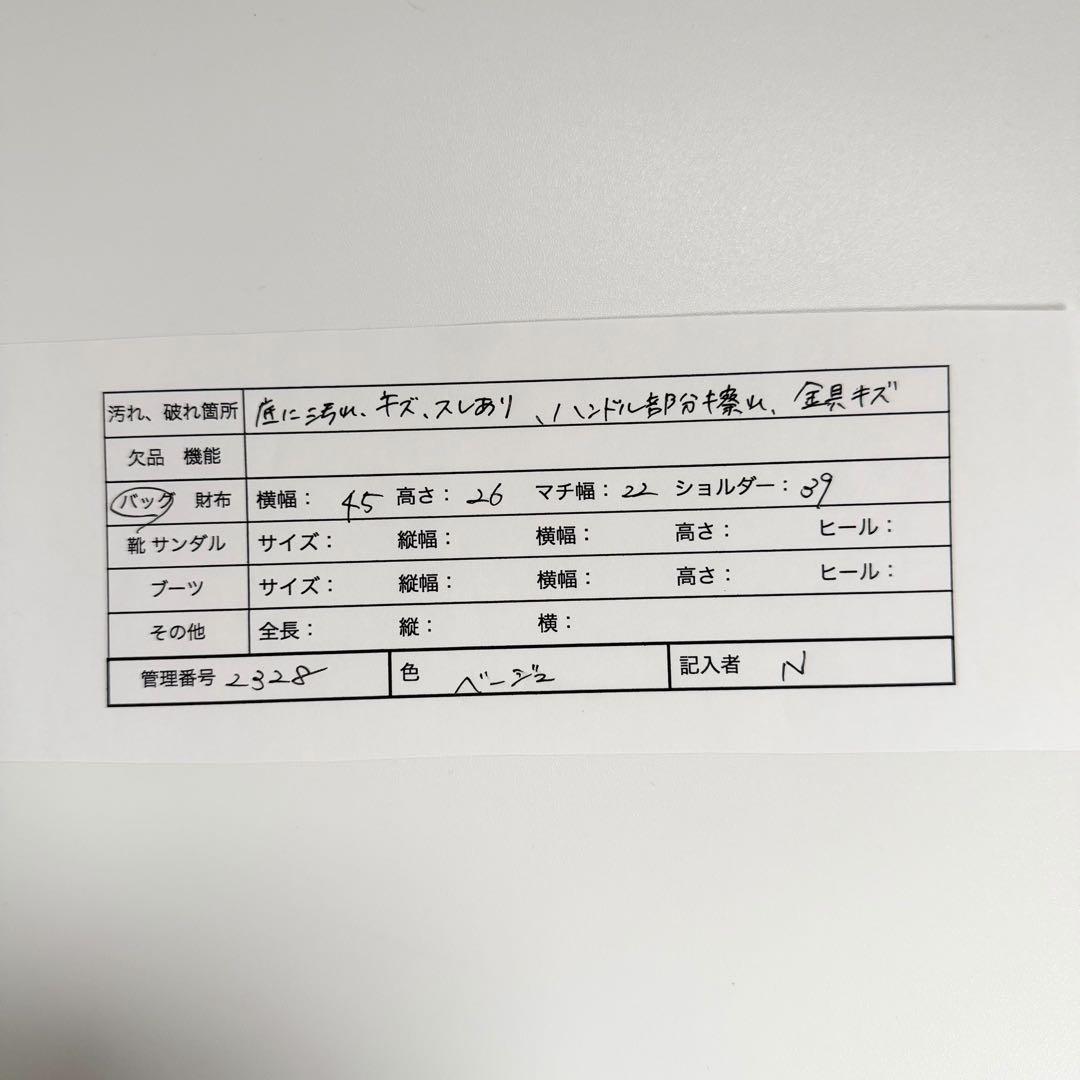 汚れ、破れ箇所 底に汚れ、キズ、スレあり、ハンドル部分擦れ、金具キズ
欠品 機能
バッグ 財布 横幅： 45 高さ： 26 マチ幅： 22 ショルダー： 39
靴 サンダル サイズ： 縦幅： 横幅： 高さ： ヒール：
ブーツ サイズ： 縦幅： 横幅： 高さ： ヒール：
その他 全長： 縦： 横：
管理番号 2328 色 ベージュ 記入者 N